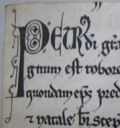 Petrꝰ di gra
gnum est robore
quondam eps pred
⁊ natale bi step